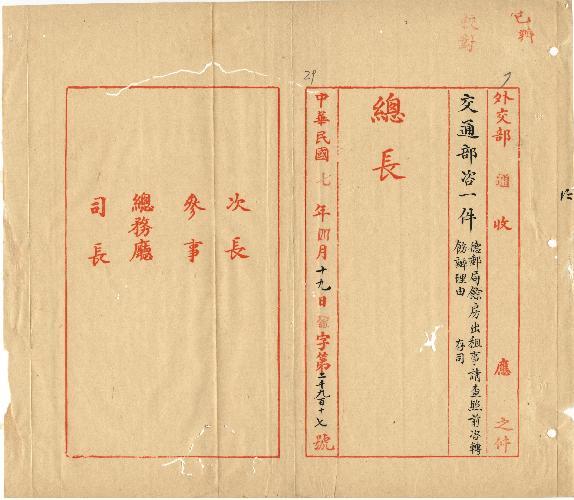 已辦
校對
7
29
外交部 通 收 應 之件
交通部咨一件
德郵局餘房出租事請查照前咨轉
飭辦理由 存司
總長
中華民國 七 年 四 月 十九 日 字第 二千九百十七 號
次長
參事
總務廳
司長